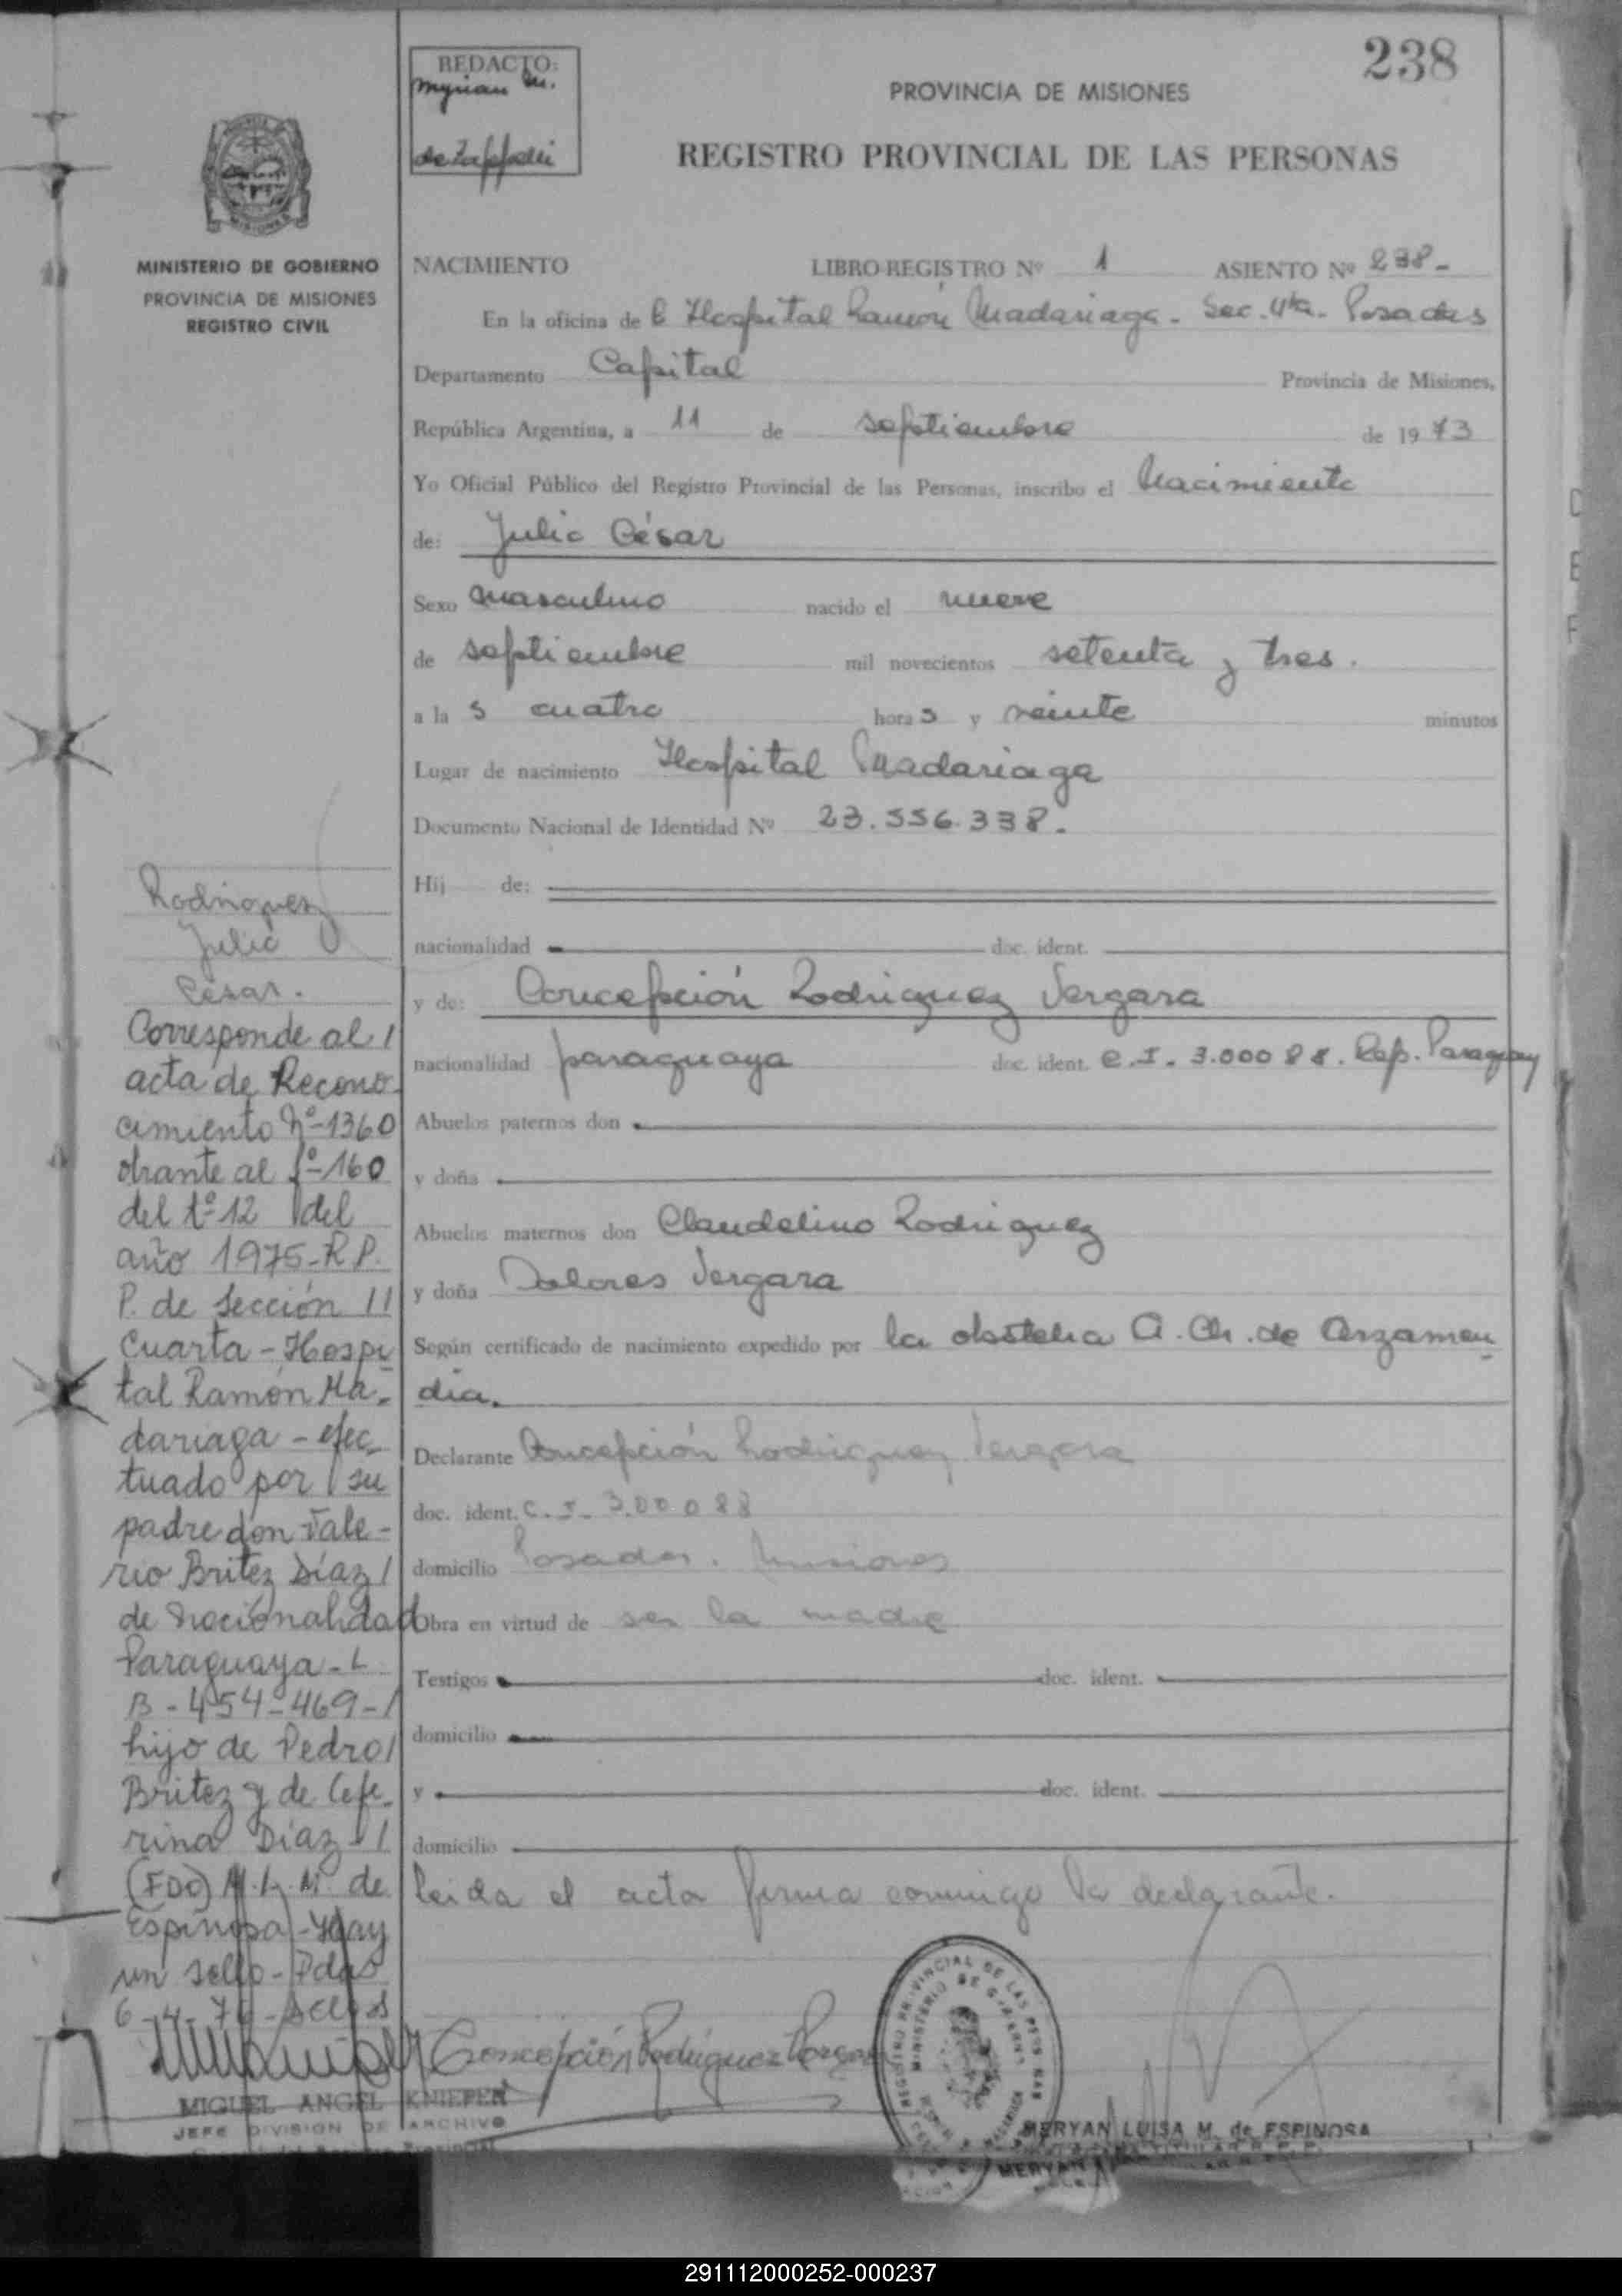 238
REDACTO:
Myrian M.
de Zappelli
PROVINCIA DE MISIONES
REGISTRO PROVINCIAL DE LAS PERSONAS
MINISTERIO DE GOBIERNO
PROVINCIA DE MISIONES
REGISTRO CIVIL
NACIMIENTO LIBRO REGISTRO Nº 1 ASIENTO Nº 238-
En la oficina de Hospital Ramón Madariaga - Sec. 4ta - Posadas
Departamento Capital Provincia de Misiones,
República Argentina, a 11 de septiembre de 1973
Yo Oficial Público del Registro Provincial de las Personas, inscribo el Nacimiento
de: Julio César
Sexo masculino nacido el nueve
de septiembre mil novecientos setenta y tres.
a la s cuatro hora s y veinte minutos
Lugar de nacimiento Hospital Madariaga
Documento Nacional de Identidad Nº 23.556.338.
Hij de:
nacionalidad doc. ident.
y de: Concepción Rodriguez Vergara
nacionalidad paraguaya doc. ident. C.I. 3.000 88. Rep. Paraguay
Abuelos paternos don
y doña
Abuelos maternos don Claudelino Rodriguez
y doña Dolores Vergara
Según certificado de nacimiento expedido por la obstetra A. Ch. de Arzamen
dia.
Declarante Concepción Rodriguez Vergara
doc. ident. C.I. 3.00 0 88
domicilio Posadas. Misiones
Obra en virtud de ser la madre
Testigos doc. ident.
domicilio
y doc. ident.
domicilio
leida el acta firma conmigo la declarante.
Rodriguez
Julio
César.
Corresponde al /
acta de Recono-
cimiento Nº-1360
obrante al fº-160
del tº-12 del
año 1975-R.P.
P. de Sección //
Cuarta - Hospi
tal Ramón Ma-
dariaga - efec-
tuado por su
padre don Vale-
rio Britez Díaz /
de nacionalidad
Paraguaya - L
B - 454-469-/
hijo de Pedro /
Britez y de Cefe-
rina Díaz - /
(FDO) M. L. M. de
Espinosa - Hay
un sello - Pdas
6-4-76-
Concepción Rodriguez Vergara
MIGUEL ANGEL KNIEPER
JEFE DIVISION DE ARCHIVO
MERYAN LUISA M. de ESPINOSA
291112000252-000237